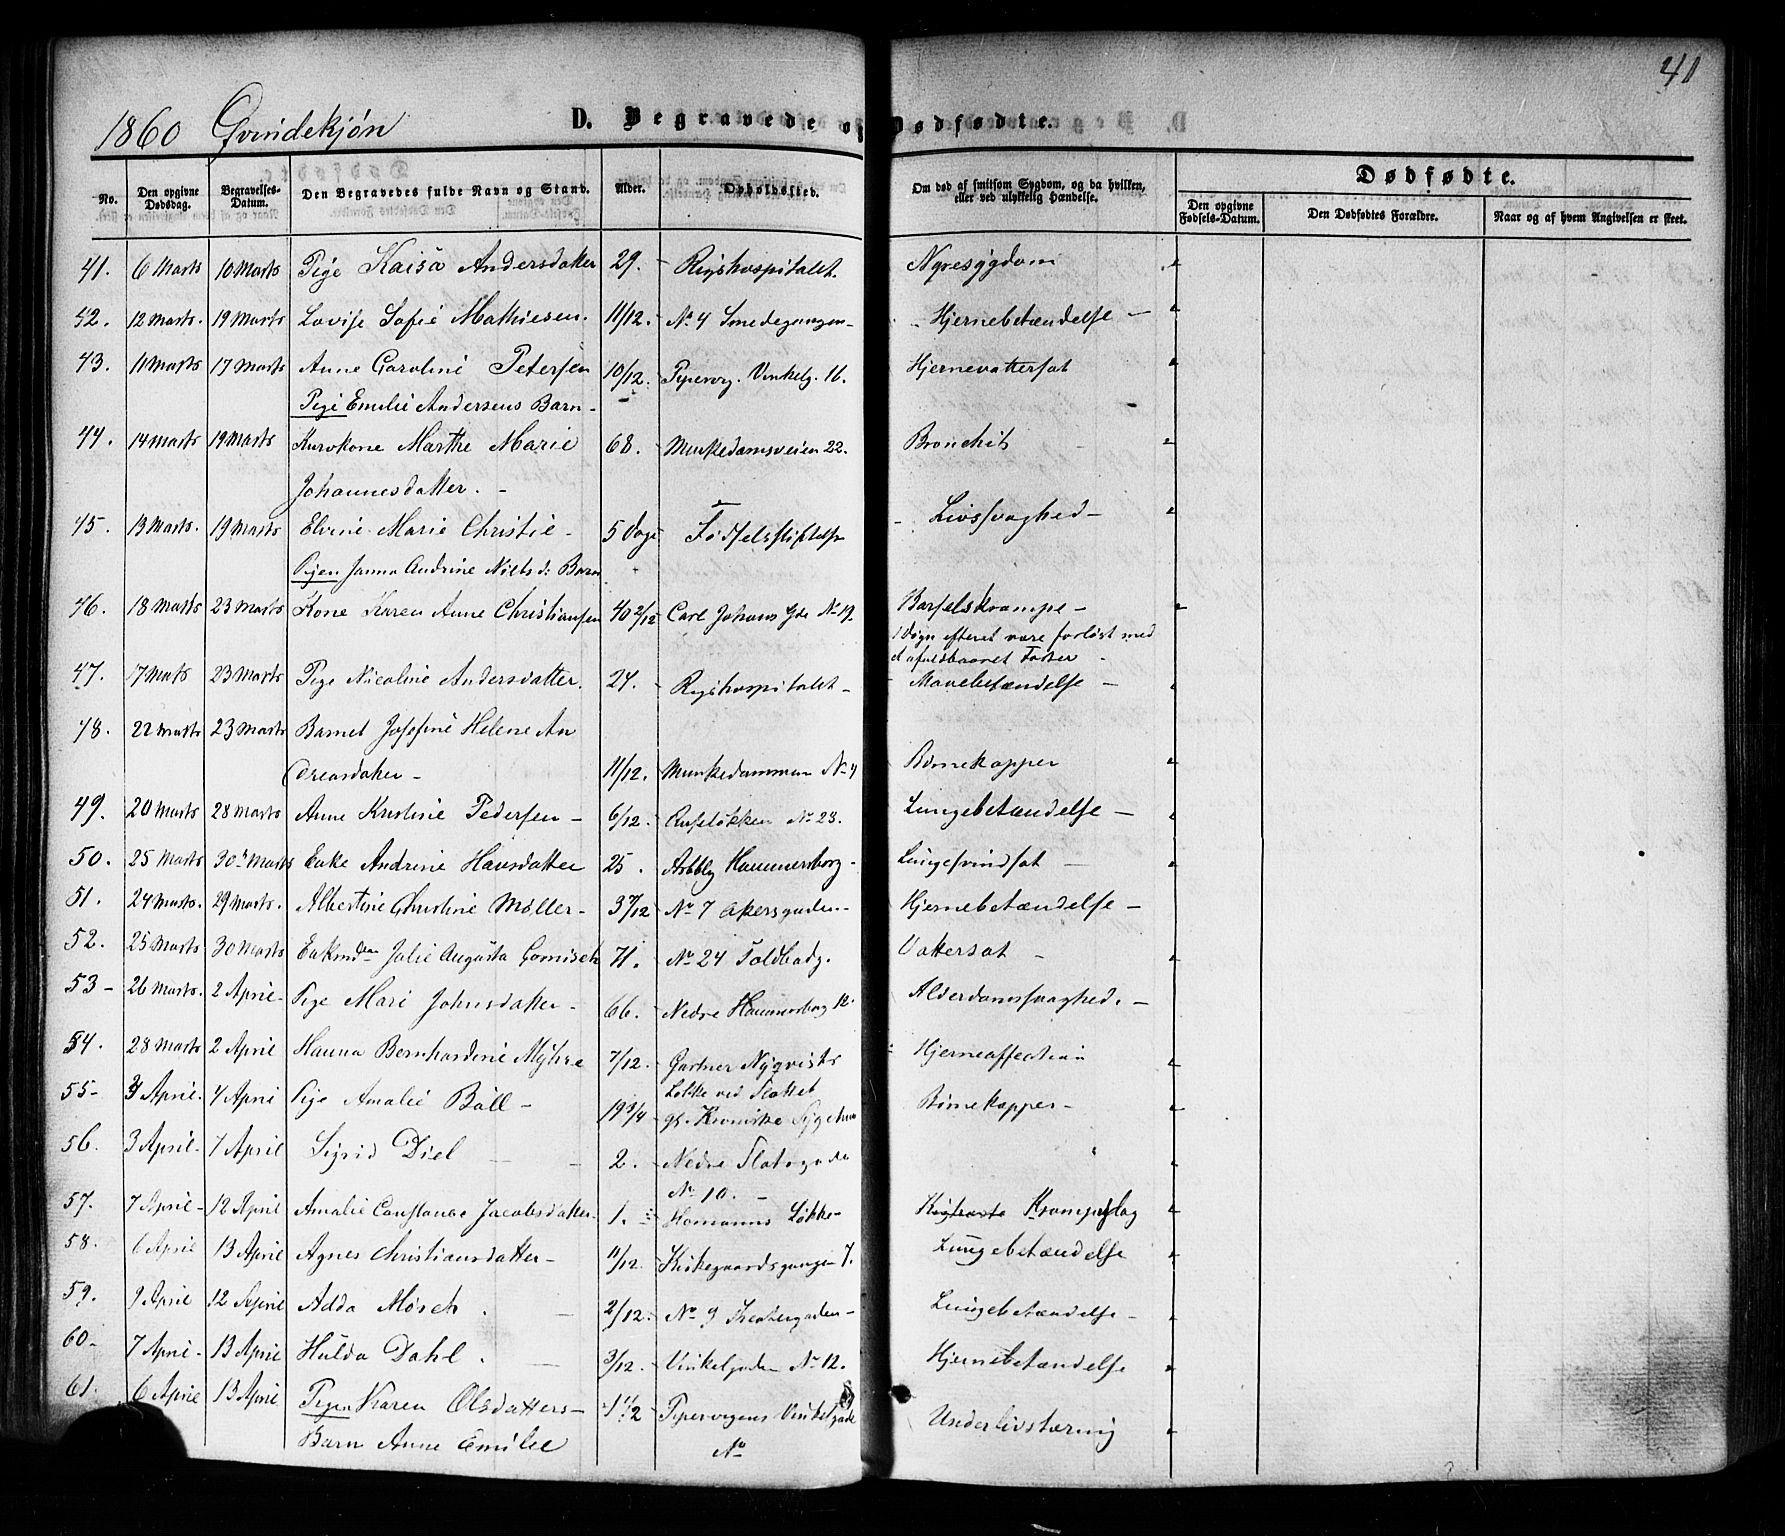 41
1860 Qvindekjøn D. Begravede og Dødfødte.
No. Den opgivne Dødsdag. Begravelses-Datum. Den Begravedes fulde Navn og Stand. Alder. Opholdssted. Om død af smitsom Sygdom, og da hvilken, eller ved ulykkelig Hændelse. Dødfødte.
Den opgivne Fødsels-Datum. Den Dødfødtes Forældre. Naar og af hvem Angivelsen er skeet.
41. 6 Marts 10 Marts Pige Kaisa Andersdatter 29. - Rigshospitalet. Nyresygdom
42. 12 Marts. 19 Marts Lovise Sofie Mathiesen. 11/12. No 4 Smedegangen - Hjernebetændelse -
43. 11 Marts 17 Marts Anne Caroline Petersen 10/12. Pipervig. Vinkelg. 16. Hjernevattersot
Pige Emilie Andersens Barn -
44. 14 Marts 19 Marts Marthe Marie 68. - Munkedamsveien 22. Bronchit
Johannesdatter. -
45. 13 Marts. 19 Marts Elvine Marie Christie - 5 Dage Fødselsstiftelsen - Livssvaghed -
Pigen Janna Andrine Nielsd: Barn
46. 18 Marts 23 Marts Kone Karen Anne Christiansen 40 2/12 Carl Johans Gde No 19. Barselskrampe -
1 Døgn efterat være forløst med
et afulsbaaret Foster -
47. 17 Marts 23 Marts Pige Nicoline Andersdatter. 24. - Rigshospitalet - Mavebetændelse -
48. 22 Marts 23 Marts Barnet Josefine Helene An
dreasdatter - 11/12. Munkedammen No 4 Børnekopper
49. 20 Marts 28 Marts Anne Kristine Pedersen - 6/12. Ruseløkken No 23. Lungebetændelse -
50. 25 Marts 30 Marts Enke Andrine Hansdatter 25. Hammersborg - Lungesvindsot -
51. 24 Marts. 29 Marts. Albertine Christine Møller - 3 7/12 No 7 Akersgaden - Hjernebetændelse -
52. 25 Marts 30 Marts Julie Augusta 71. - No 24 Toldbodg. Vattersot -
53 - 26 Marts. 2 April - Pige Mari Johnsdatter - 66. - Nedre Hammersborg 12. Alderdomssvaghed. -
54. 28 Marts 2 April Hanna Bernhardine Myhre 7/12. Gartner Nyqvists Hjerneaffection
Løkke ved Slottet
55 - April. 4 April Pige Amalie Boll - 19 3/4 Kroniske Sygehus Børnekopper -
56. 3 April - 7 April Sigrid Diel - 2. - Nedre Slotsgade
No 10. -
57. 7 April - 12 April Amalie Constance Jacobsdatter. 1. Homanns Løkke - Krampeslag
58. 6 April 13 April Agnes Christiansdatter - 11/12. Kirkegaardsgangen 7. Lungebetændelse
59. 9 April 12 April Adda Mosch. - 2/12. No 9 Theatergaden - Lungebetændelse -
60 - 7 April - 13 April Hulda Dahl. - 3/12. Vinkelgaden No 12. Hjernebetændelse
61. 6 April 13 April Pigen Karen Olsdatters - Pipervigens Vinkelgade Underlivstæring
Barn Anne Emilie No